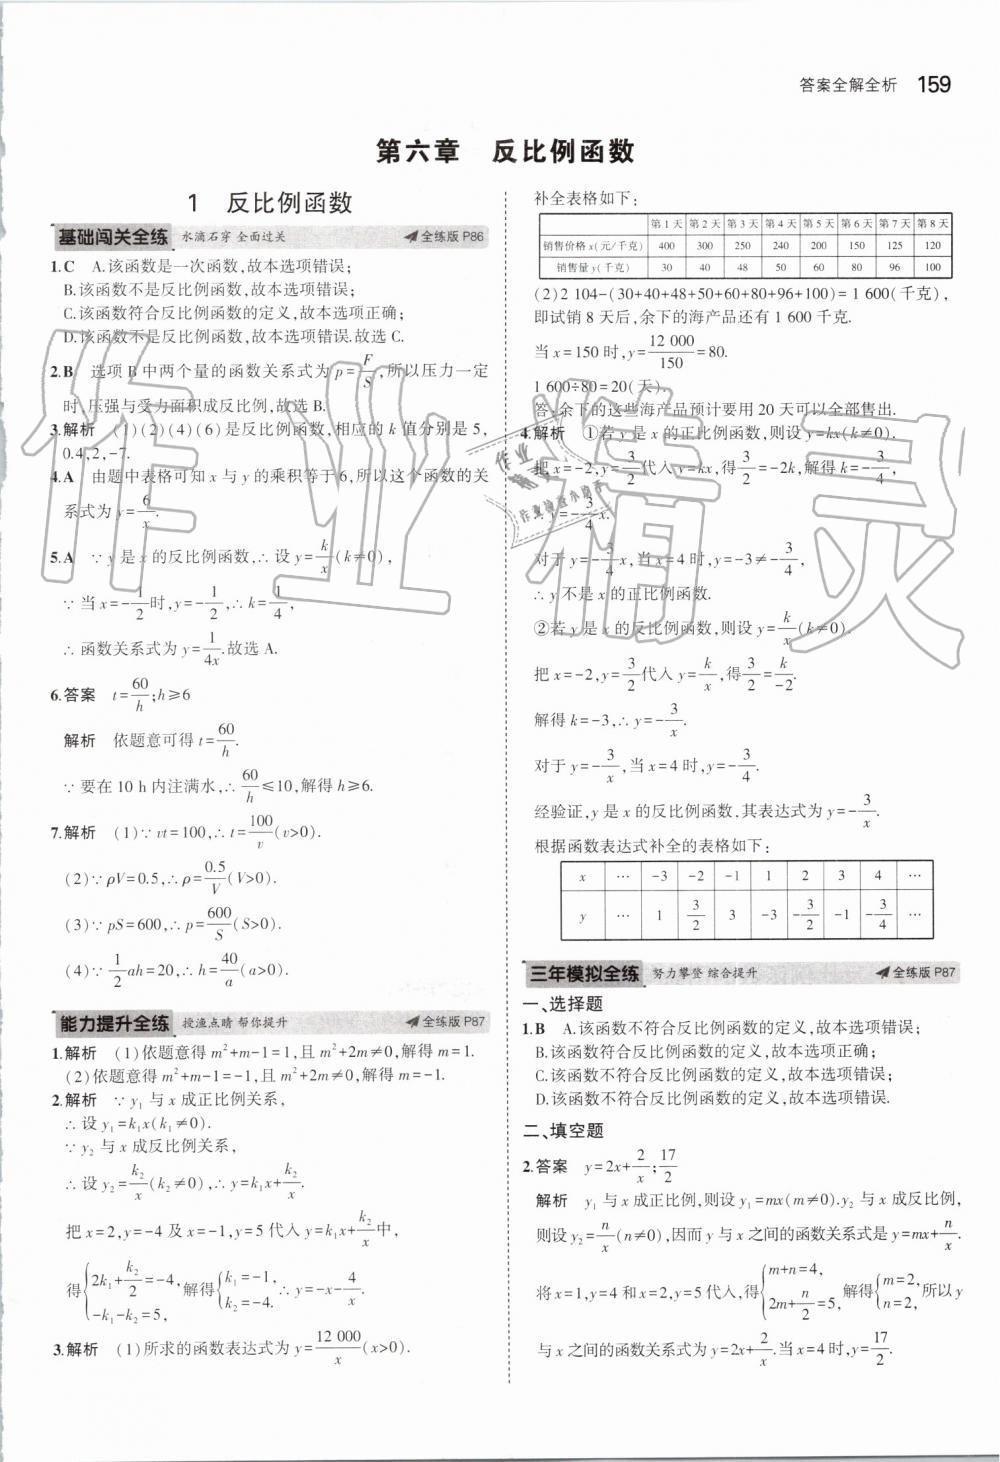 答案全解全析 159
第六章 反比例函数
1 反比例函数
基础闯关全练 水滴石穿 全面过关 全练版 P86
1.C A.该函数是一次函数,故本选项错误;
B.该函数不是反比例函数,故本选项错误;
C.该函数符合反比例函数的定义,故本选项正确;
D.该函数不是反比例函数,故本选项错误.故选 C.
2.B 选项 B 中两个量的函数关系式为 p=F/S,所以压力一定
时,压强与受力面积成反比例,故选 B.
3.解析 (1)(2)(4)(6)是反比例函数,相应的 k 值分别是 5,
0.4,2,-7.
4.A 由题中表格可知 x 与 y 的乘积等于 6,所以这个函数的关
系式为 y=6/x.
5.A ∵y 是 x 的反比例函数,∴设 y=k/x(k≠0),
∵当 x=-1/2时,y=-1/2,∴k=1/4,
∴函数关系式为 y=1/4x.故选 A.
6.答案 t=60/h;h≥6
解析 依题意可得 t=60/h.
∵要在 10 h 内注满水,∴60/h≤10,解得 h≥6.
7.解析 (1)∵vt=100,∴t=100/v(v>0).
(2)∵ρV=0.5,∴ρ=0.5/V(V>0).
(3)∵pS=600,∴p=600/S(S>0).
(4)∵1/2ah=20,∴h=40/a(a>0).
能力提升全练 授渔点睛 帮你提升 全练版 P87
1.解析 (1)依题意得 m²+m-1=1,且 m²+2m≠0,解得 m=1.
(2)依题意得 m²+m-1=-1,且 m²+2m≠0,解得 m=-1.
2.解析 ∵y₁ 与 x 成正比例关系,
∴设 y₁=k₁x(k₁≠0).
∵y₂ 与 x 成反比例关系,
∴设 y₂=k₂/x(k₂≠0),∴y=k₁x+k₂/x.
把 x=2,y=-4 及 x=-1,y=5 代入 y=k₁x+k₂/x中,
得{2k₁+k₂/2=-4, -k₁-k₂=5, 解得{k₁=-1, k₂=-4. ∴y=-x-4/x.
3.解析 (1)所求的函数表达式为 y=12 000/x(x>0).
补全表格如下:
第 1 天 第 2 天 第 3 天 第 4 天 第 5 天 第 6 天 第 7 天 第 8 天
销售价格 x(元/千克) 400 300 250 240 200 150 125 120
销售量 y(千克) 30 40 48 50 60 80 96 100
(2)2 104-(30+40+48+50+60+80+96+100)=1 600(千克),
即试销 8 天后,余下的海产品还有 1 600 千克.
当 x=150 时,y=12 000/150=80.
1 600÷80=20(天).
答:余下的这些海产品预计要用 20 天可以全部售出.
4.解析 ①若 y 是 x 的正比例函数,则设 y=kx(k≠0).
把 x=-2,y=3/2代入 y=kx,得3/2=-2k,解得 k=-3/4,
∴y=-3/4x.
对于 y=-3/4x,当 x=4 时,y=-3≠-3/4,
∴y 不是 x 的正比例函数.
②若 y 是 x 的反比例函数,则设 y=k/x(k≠0).
把 x=-2,y=3/2代入 y=k/x,得3/2=k/-2.
解得 k=-3,∴y=-3/x.
对于 y=-3/x,当 x=4 时,y=-3/4.
经验证,y 是 x 的反比例函数,其表达式为 y=-3/x.
根据函数表达式补全的表格如下:
x … -3 -2 -1 1 2 3 4 …
y … 1 3/2 3 -3 -3/2 -1 -3/4 …
三年模拟全练 努力攀登 综合提升 全练版 P87
一、选择题
1.B A.该函数不符合反比例函数的定义,故本选项错误;
B.该函数符合反比例函数的定义,故本选项正确;
C.该函数不符合反比例函数的定义,故本选项错误;
D.该函数不符合反比例函数的定义,故本选项错误.
二、填空题
2.答案 y=2x+2/x;17/2
解析 y₁ 与 x 成正比例,则设 y₁=mx(m≠0).y₂ 与 x 成反比例,
则设 y₂=n/x(n≠0),因而 y 与 x 之间的函数关系式是 y=mx+n/x.
将 x=1,y=4 和 x=2,y=5 代入,得{m+n=4, 2m+n/2=5, 解得{m=2, n=2, 所以 y
与 x 之间的函数关系式为 y=2x+2/x.当 x=4 时,y=17/2.
作业精灵